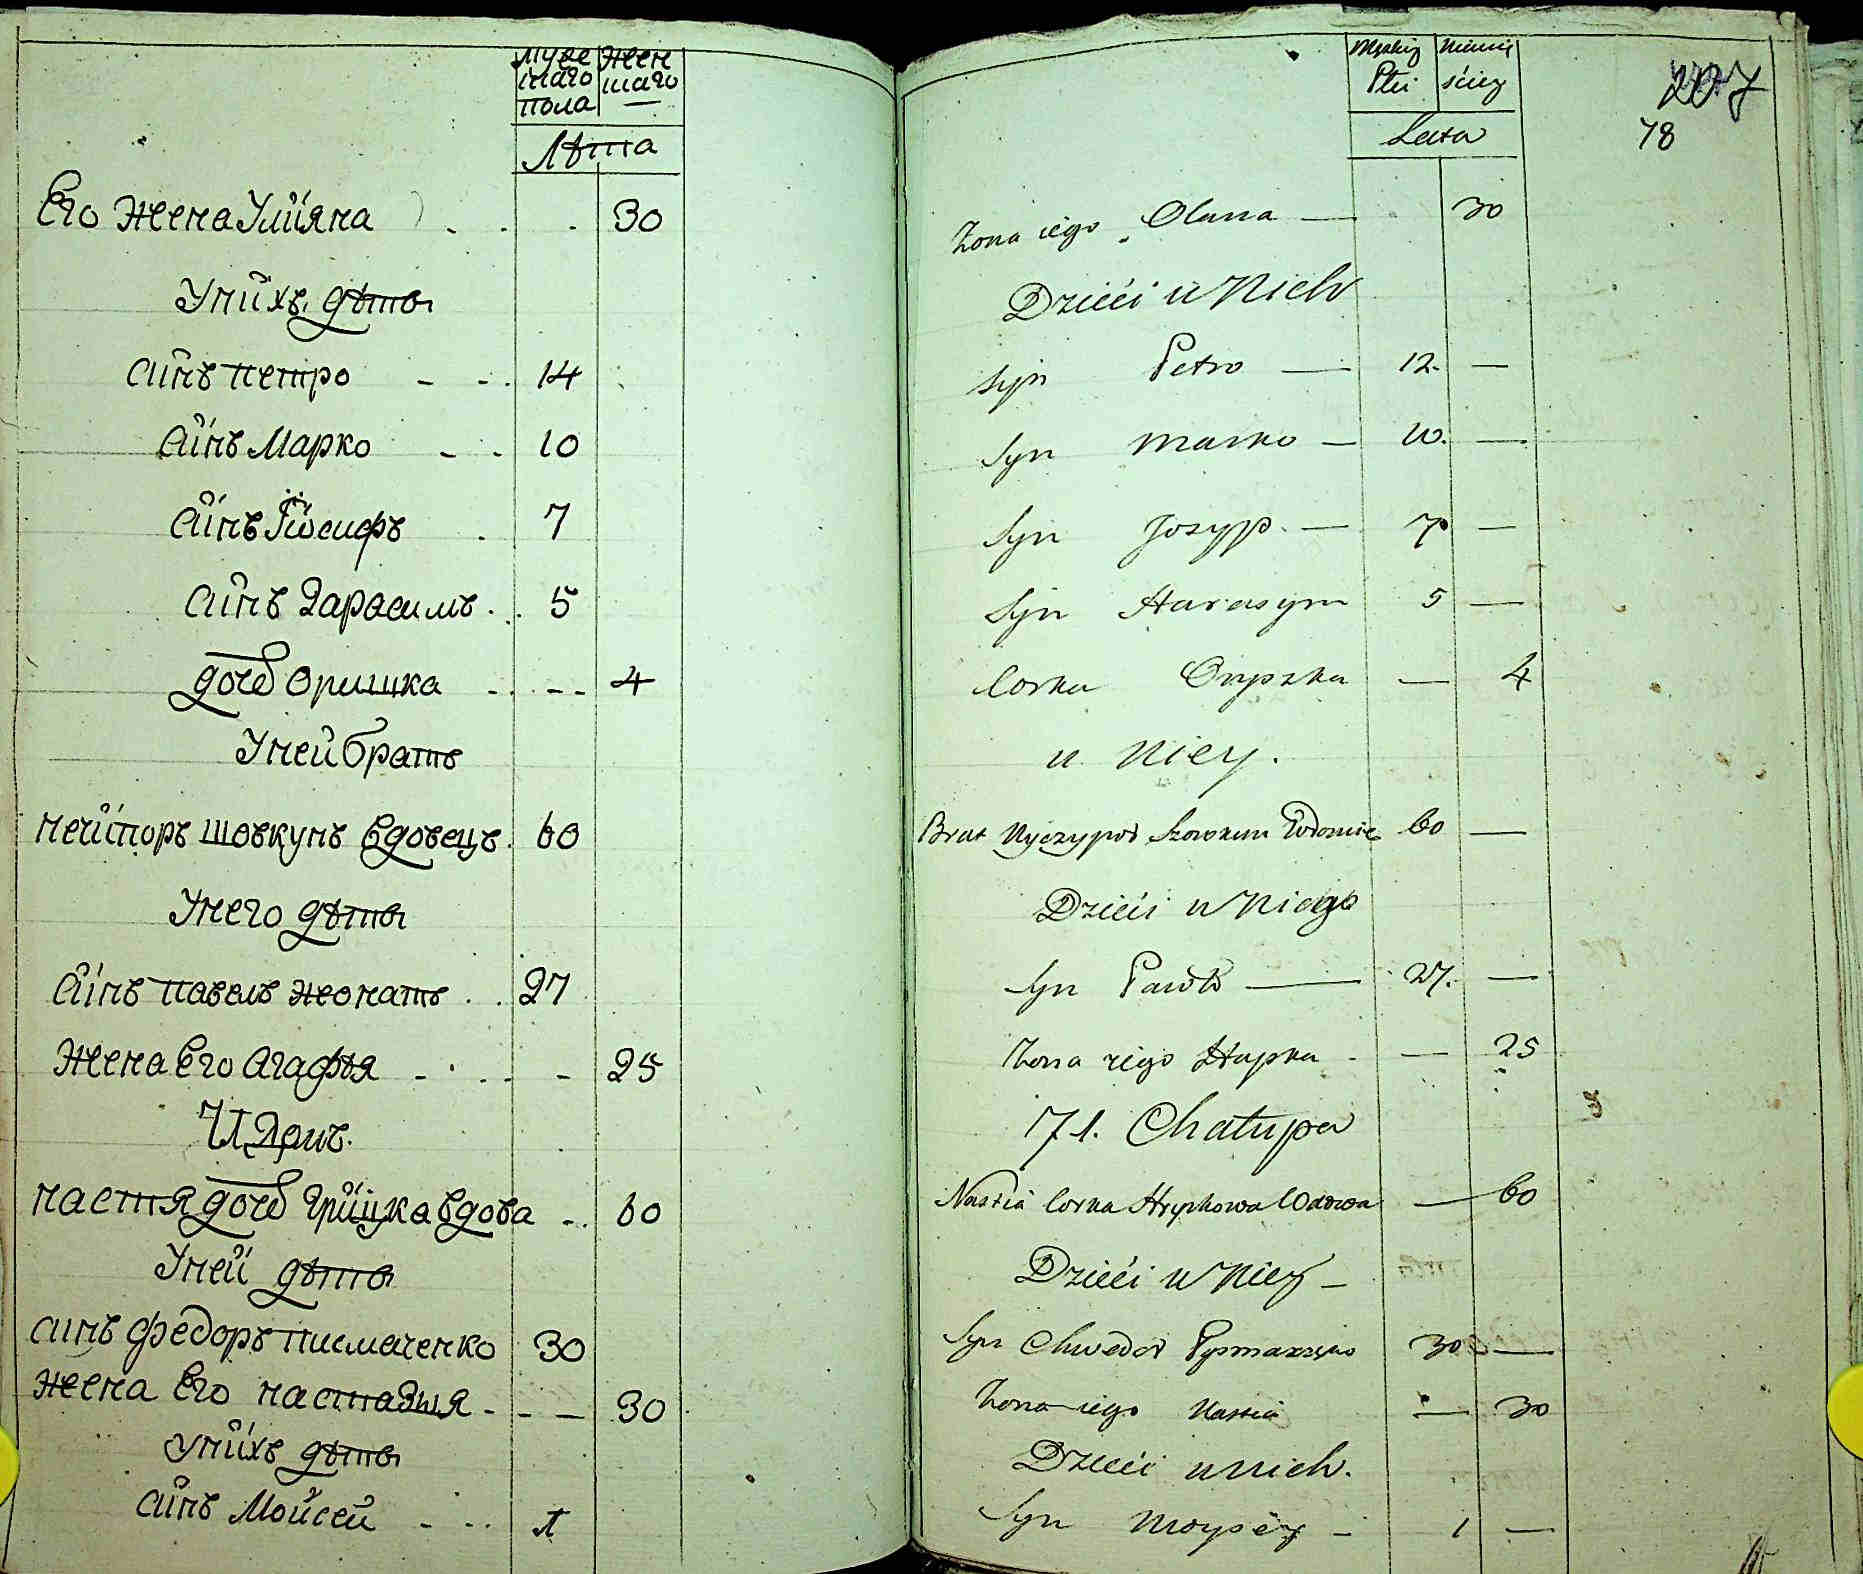 муже
скаго
пола
жен
скаго
—
Лѣта
Его жена Улияна 30
У нихъ дѣти
Синъ петро 14
Синъ Марко 10
Синъ Иосифъ 7
Синъ Гарасимъ 5
дочь Оришка 4
У ней братъ
нечипоръ шовкунъ вдовецъ 60
У него дѣти
Синъ павелъ жонатъ 27
Жена Его Агафья 25
настя дочь Грицка вдова 60
У ней дѣти
синъ федоръ писмаченко 30
жена Его настазия 30
у нихъ дѣти
синъ Мойсей 1
Męzkiey
Płci
Niewie
śćiey
Lata
207
78
Zona iego Olana — 30
Dzieći u Nich
Syn Petro — 12. —
Syn Marko — 10. —
Syn Jozyp. — 7 —
Syn Harasym 5 —
Corka Oryszka — 4
u Niey.
Brat Nyczypor Szowkun Wdowiec 60 —
Dzieći u Niego
Syn Pawło — 27. —
Zona iego Hapka — 25
71. Chałupa
Nastia Corka Hryckowa Wdowa — 60
Dzieći u Niey —
Syn Chwedor Pysmaczęko 30 —
Zona iego Nastia — 30
Dzieći u nich.
Syn Moysey — 1 —